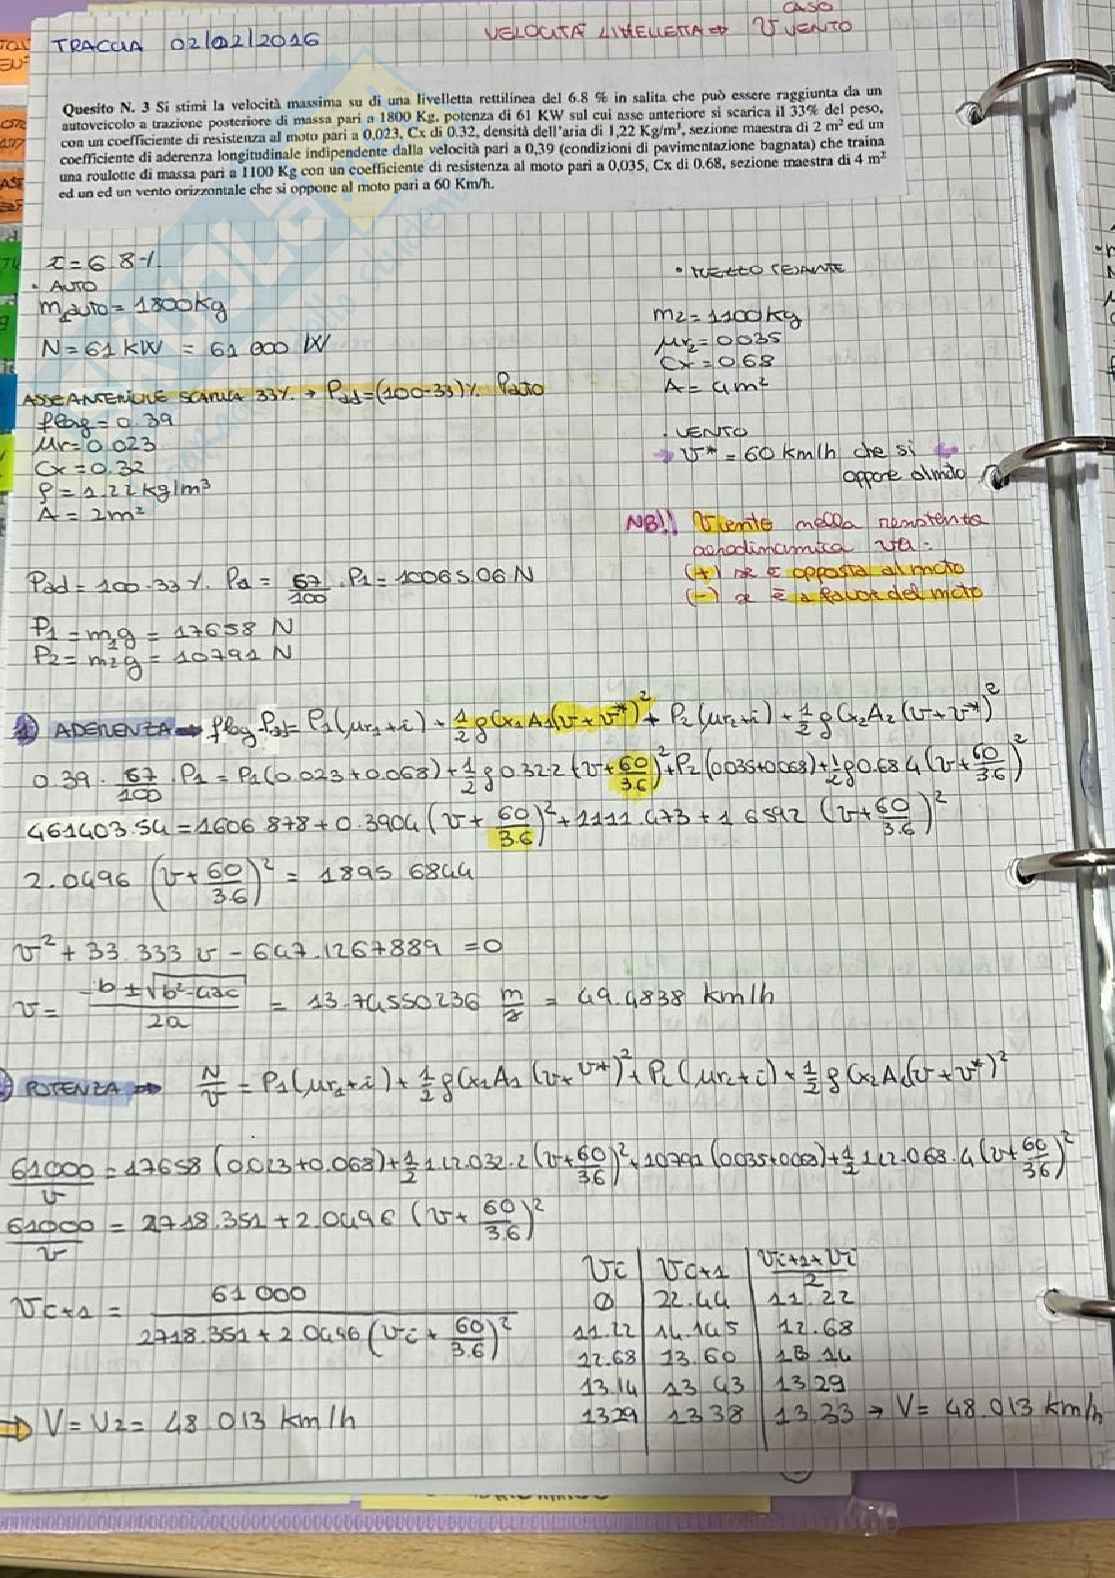 CASO
TRACCIA 02/02/2016
VELOCITÀ LIVELLETTA ⇒ V VENTO
Quesito N. 3 Si stimi la velocità massima su di una livelletta rettilinea del 6.8 % in salita che può essere raggiunta da un
autoveicolo a trazione posteriore di massa pari a 1800 Kg, potenza di 61 KW sul cui asse anteriore si scarica il 33% del peso,
con un coefficiente di resistenza al moto pari a 0,023, Cx di 0.32, densità dell'aria di 1,22 Kg/m³, sezione maestra di 2 m² ed un
coefficiente di aderenza longitudinale indipendente dalla velocità pari a 0,39 (condizioni di pavimentazione bagnata) che traina
una roulotte di massa pari a 1100 Kg con un coefficiente di resistenza al moto pari a 0,035, Cx di 0.68, sezione maestra di 4 m²
ed un ed un vento orizzontale che si oppone al moto pari a 60 Km/h.
i = 6.8%
• AUTO
m auto = 1800 kg
N = 61 kW = 61 000 W
ASSE ANTERIORE SCARICA 33% → Pad = (100-33)% Pauto
flong = 0.39
μr = 0.023
Cx = 0.32
ρ = 1.22 kg/m³
A = 2m²
• MEZZO PESANTE
m2 = 1100 kg
μr2 = 0.035
Cx = 0.68
A = 4m²
• VENTO
→ v* = 60 km/h che si
oppone al moto
NB!! Vvento nella
aerodinamica va:
(+) se è opposta al moto
(-) se è a favor del moto
Pad = 100-33% · Pa = 67/100 · P1 =
P1 = m1g = 17658 N
P2 = m2g = 10791 N
1) ADERENZA → flong Pad = P1(μr1+i) + 1/2 ρ Cx1 A1(v+v*)² + P2(μr2+i) + 1/2 ρ Cx2 A2 (v+v*)²
0.39 · 67/100 · P1 = P1(0.023+0.068) + 1/2 ρ 0.32·2 (v+60/3.6)² + P2(0.035+0.068) + 1/2 ρ 0.68·4 (v+60/3.6)²
= 1606.878 + 0.3904 (v+60/3.6)² + 1111.473 + 1.6592 (v+60/3.6)²
2.0496 (v+60/3.6)² = 1895.6844
v² + 33.333 v - 647.1267889 = 0
v = -b ± √b²-4ac / 2a = 13.74550236 m/s = 49.4838 km/h
2) POTENZA ⇒ N/v = P1(μr1+i) + 1/2 ρ Cx1 A1 (v+v*)² + P2(μr2+i) + 1/2 ρ Cx2 A2(v+v*)²
61000/v = 17658 (0.023+0.068) + 1/2 1.22·0.32·2 (v+60/3.6)² + 10791 (0.035+0.068) + 1/2 1.22·0.68·4 (v+60/3.6)²
61000/v = 2718.351 + 2.0496 (v+60/3.6)²
vi+1 = 61 000 / 2718.351 + 2.0496 (vi + 60/3.6)²
Vi | Vi+1 | Vi+1+Vi/2
0 | 22.44 | 11.22
11.22 | 14.145 | 12.68
12.68 | 13.60 | 13.14
13.14 | 13.43 | 13.29
13.29 | 13.38 | 13.33 → V = 48.013 km/h
⇒ V = V2 = 48.013 km/h